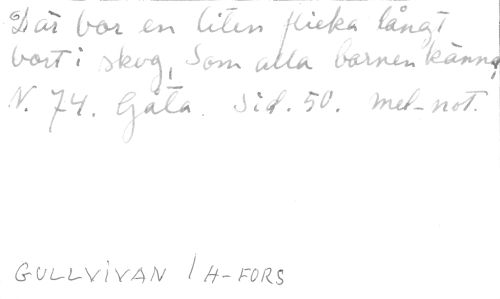 Där bor en liten flicka långt
bort i skog, Som alla barnen känna,
N. 74. Gåta. Sid. 50. mel-not.
GULLVIVAN / H-FORS